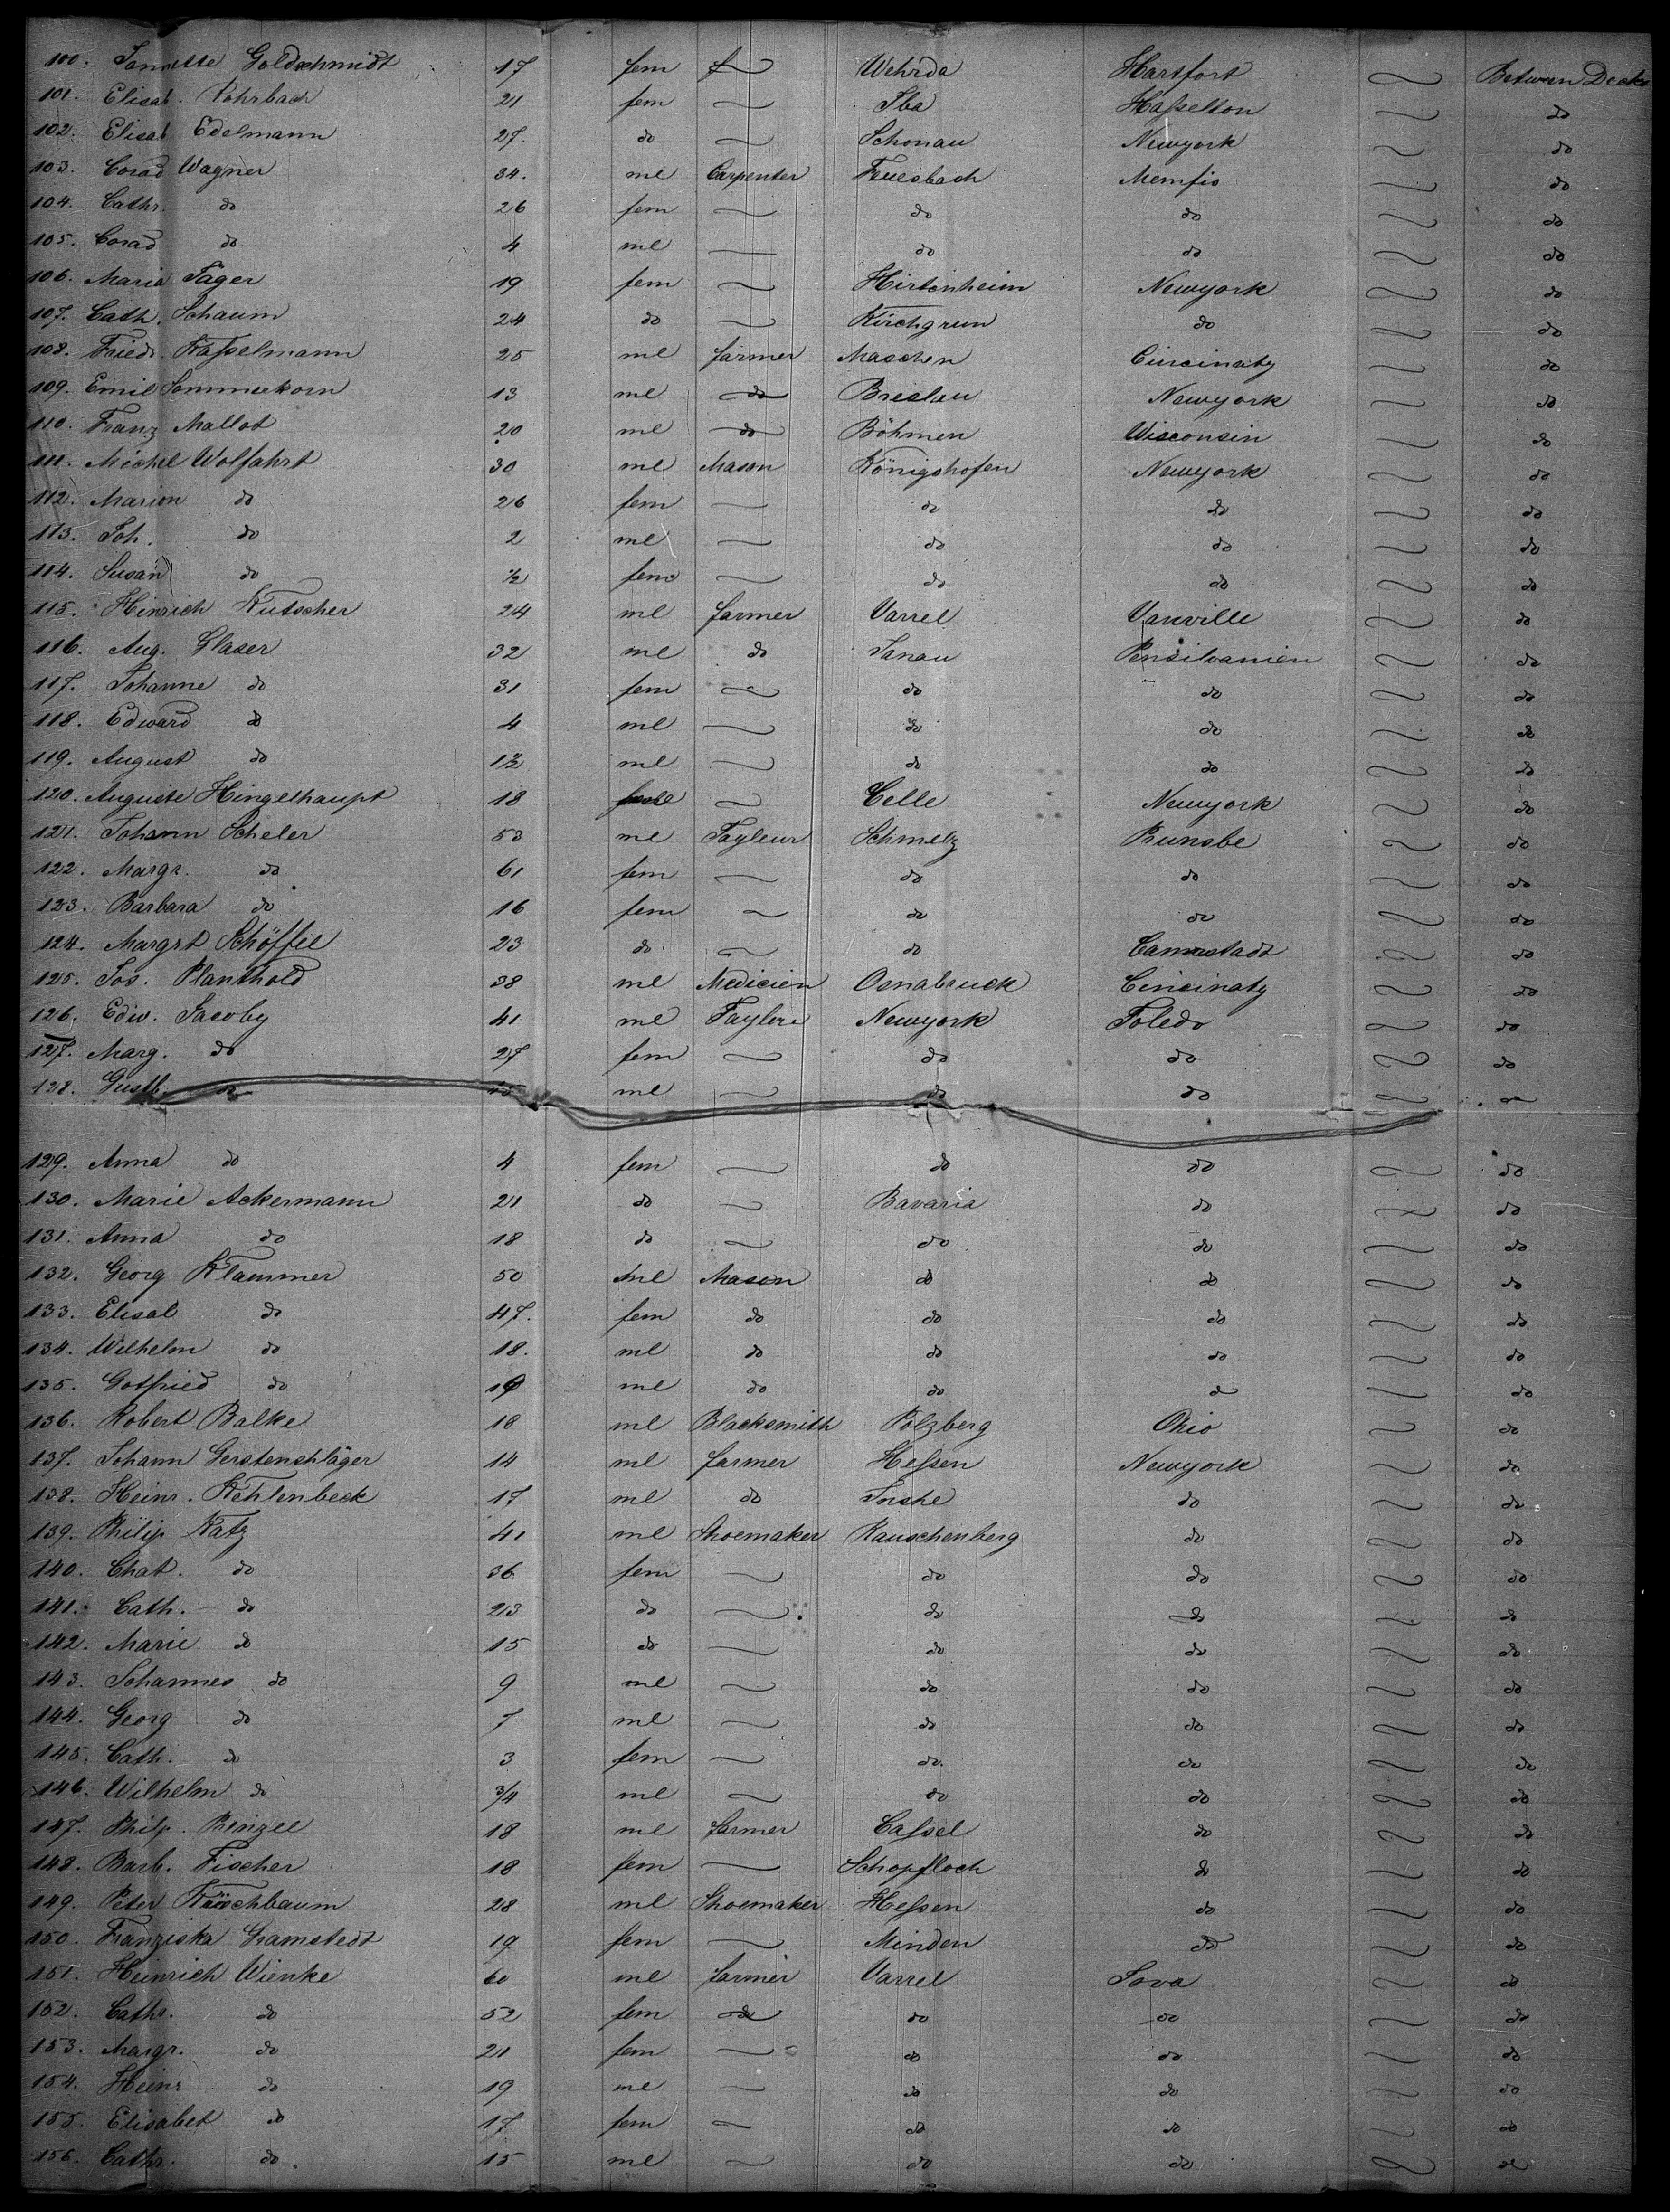 100. Jannette Goldschmidt 17 fem Wehrda Hartfort Between Decks
101. Elisab. Vohrbach 21 fem Iba Hasselton do
102. Elisab Edelmann 27. do Schonau Newyork do
103. Corad Wagner 34. ml Carpenter Feuesbach Memfis do
104. Cathr. do 26 fem do do do
105. Corad do 4 ml do do do
106. Maria Jäger 19 fem Hirtenheim Newyork do
107. Cath. Schaum 24 do Kirchgrun do do
108. Friedr. Kasselmann 25 ml farmer Maschen Cincinaty do
109. Emil Sommerkorn 13 ml do Breslau Newyork do
110. Franz Mallot 20 ml do Böhmen Wisconsin do
111. Michel Wolfahrt 30 ml Mason Königshofen Newyork do
112. Marion do 26 fem do do do
113. Joh. do 2 ml do do do
114. Susan do ½ fem do do do
115. Hinrich Kutscher 24 ml farmer Varrel Vanville do
116. Aug. Glaser 32 ml do Janau Pensilvanien do
117. Johanne do 31 fem do do do
118. Edward do 4 ml do do do
119. August do 1½ ml do do do
120. Auguste Hingelhaupt 18 Celle Newyork do
121. Johann Scheler 53 ml Tayleur Schmelz Runsbe do
122. Margr. do 61 fem do do do
123. Barbara do 16 fem do do do
124. Margrt Schöffel 23 do do Cannstadt do
125. Jos. Planthold 38 ml Medicien Osnabruck Cincinaty do
126. Edw. Jacoby 41 ml Tayler Newyork Toledo do
127. Marg. do 27 fem do do do
128. Gustb. do ml do do
129. Anna do 4 fem do do do
130. Marie Ackermann 21 do Bavaria do do
131. Anna do 18 do do do do
132. Georg Klammer 50 ml Mason do do do
133. Elisab do 47. fem do do do do
134. Wilhelm do 18. ml do do do do
135. Gotfried do 19 ml do do do do
136. Robert Balke 18 ml Blacksmith Polzberg Ohio do
137. Johann Gerstenschläger 14 ml farmer Hessen Newyork do
138. Heinr. Kehlenbeck 17 ml do Inshe do do
139. Philip Katz 41 ml Shoemaker Rauschenberg do do
140. Chat. do 36 fem do do do
141. Cath. do 23 do do do do
142. Marie do 15 do do do do
143. Johannes do 9 ml do do do
144. Georg do 7 ml do do do
145. Cath. do 3 fem do. do do
146. Wilhelm do 3/4 ml do do do
147. Philp. Rinzel 18 ml farmer Cassel do do
148. Barb. Fischer 18 fem Schopfloch do do
149. Peter Kirschbaum 28 ml Shoemaker Hessen do do
150. Franziska Gramstedt 19 fem Minden do do
151. Heinrich Wienke 60 ml farmer Varrel Iova do
152. Cathr. do 52 fem do do do do
153. Margr. do 21 fem do do do
154. Heinr do 19 ml do do do
155. Elisabet do 17 fem do do do
156. Cathr. do. 15 ml do do do